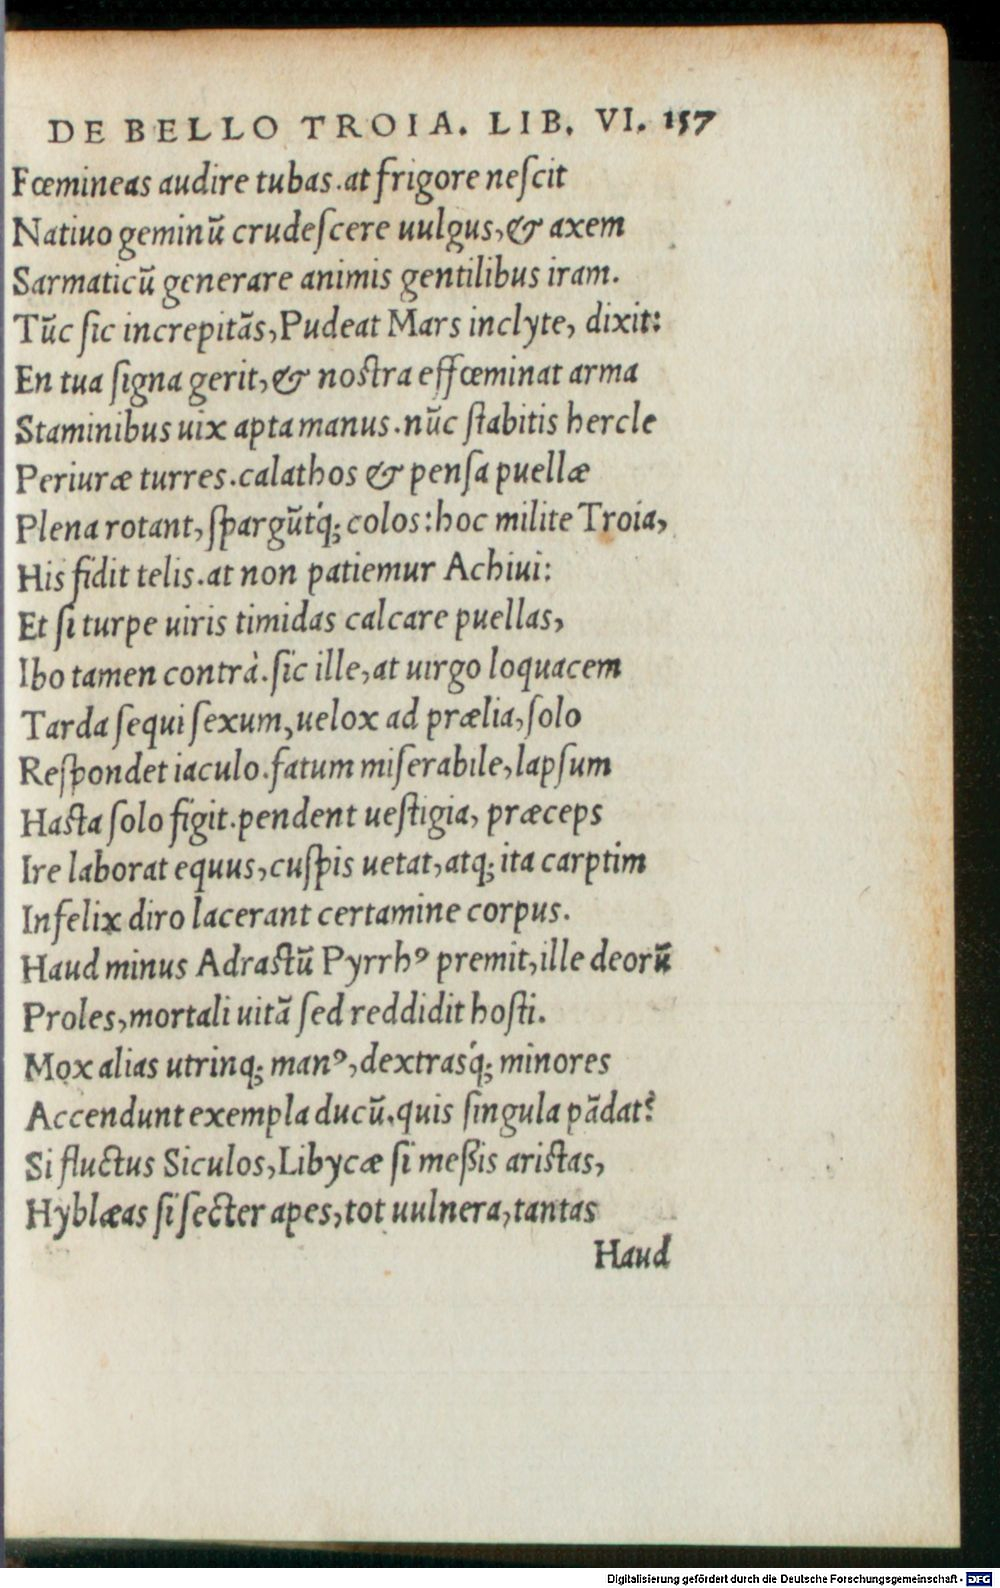 DE BELLO TROIA. LIB. VI. 157
Fœmineas audire tubas.at frigore neſcit
Natiuo geminū crudeſcere uulgus,& axem
Sarmaticū generare animis gentilibus iram.
Tūc ſic increpitās,Pudeat Mars inclyte, dixit:
En tua ſigna gerit,& noſtra effœminat arma
Staminibus uix apta manus.nūc ſtabitis hercle
Periuræ turres.calathos & penſa puellæ
Plena rotant,ſpargūtq́; colos:hoc milite Troia,
His fidit telis.at non patiemur Achiui:
Et ſi turpe uiris timidas calcare puellas,
Ibo tamen contrà.ſic ille,at uirgo loquacem
Tarda ſequi ſexum,uelox ad prælia,ſolo
Reſpondet iaculo.fatum miſerabile,lapſum
Haſta ſolo figit.pendent ueſtigia, præceps
Ire laborat equus,cuſpis uetat,atq; ita carptim
Infelix diro lacerant certamine corpus.
Haud minus Adraſtū Pyrrhꝰ premit,ille deorū
Proles,mortali uitā ſed reddidit hoſti.
Mox alias utrinq; manꝰ,dextrasq́; minores
Accendunt exempla ducū.quis ſingula pādat?
Si fluctus Siculos,Libycæ ſi meßis ariſtas,
Hyblæas ſi ſecter apes,tot uulnera,tantas
Haud
Digitalisierung gefördert durch die Deutsche Forschungsgemeinschaft - DFG